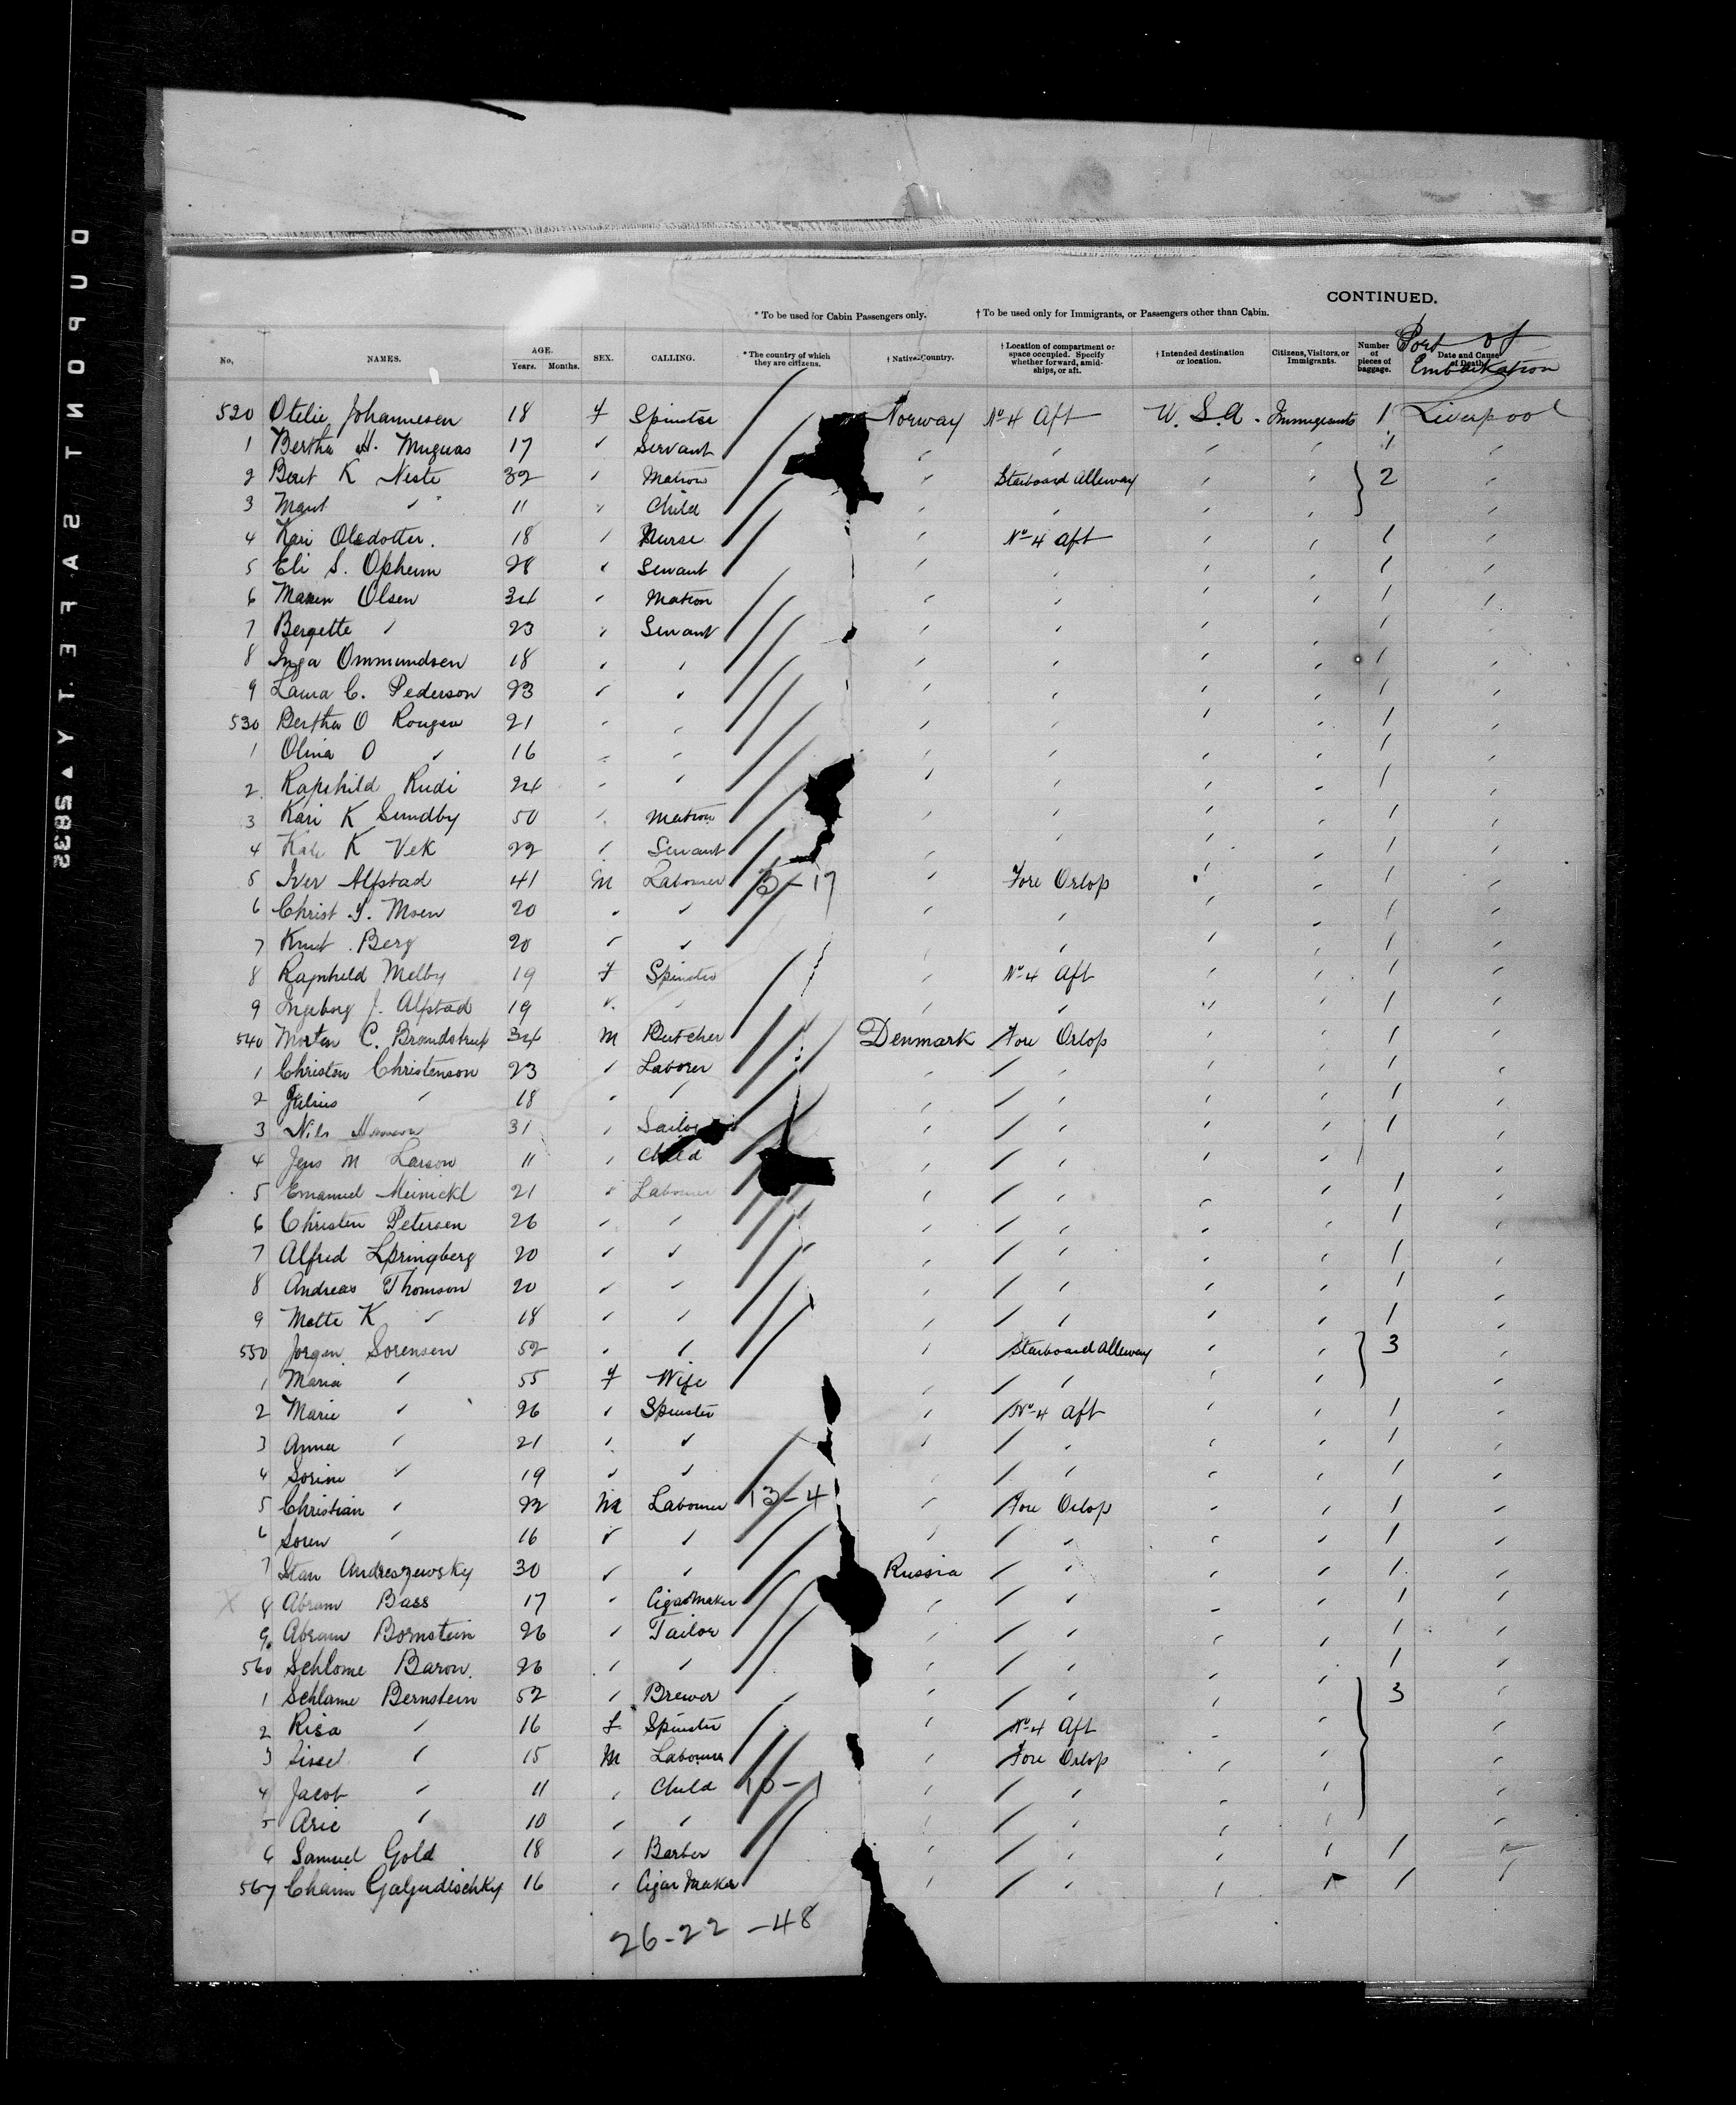 CONTINUED.
* To be used for Cabin Passengers only. † To be used only for Immigrants, or Passengers other than Cabin.
No. NAMES. AGE. Years. Months. SEX. CALLING. * The country of which they are citizens. † Native Country. † Location of compartment or space occupied. Specify whether forward, amidships, or aft. † Intended destination or location. Citizens, Visitors, or Immigrants. Number of pieces of baggage. Date and Cause of Death. Port of Embarkation
520 Otelie Johannesen 18 F Spinster Norway No 4 Aft U.S.A. Immigrants 1 Liverpool
1 Bertha H. 17 " Servant " " " " 1 "
2 Berit K Neste 32 " Matron " Starboard Alleway " " 2 "
3 Marit " 11 " Child " " " " "
4 Kari Olsdotter. 18 " Nurse " No 4 aft " " 1 "
5 Eli S. Opheim 28 " Servant " " " " 1 "
6 Maren Olsen 34 " Matron " " " " 1 "
7 Bergette " 23 " Servant " " " " 1 "
8 Inga Ommundsen 18 " " " " " " 1 "
9 Laura C. Pederson 23 " " " " " " 1 "
530 Bertha O Rougen 21 " " " " " " 1 "
1 Olina O " 16 " " " " " " 1 "
2 Rudi 24 " " " " " " 1 "
3 Kari K Sundby 50 " Matron " " " " 1 "
4 K Vek 22 " Servant " " " " 1 "
5 Iver Alfstad 41 M Labourer 3-17 " Fore Orlop " " 1 "
6 Christ Moen 20 " " " " " " 1 "
7 Knut Berg 20 " " " " " " 1 "
8 Ragnhild Melby 19 F Spinster " No 4 Aft " " 1 "
9 Ingeborg J. Alfstad 19 " " " " " " 1 "
540 Morten C. Brandstrup 34 M Butcher Denmark Fore Orlop " " 1 "
1 Christen Christenson 23 " Laborer " " " " 1 "
2 Julius " 18 " " " " " " 1 "
3 Nils 31 " Sailor " " " " 1 "
4 Jens M Larson 11 " Child " " " " 1 "
5 Emanuel Meinickl 21 " Labourer " " " " 1 "
6 Christen Petersen 26 " " " " " " 1 "
7 Alfred Springberg 20 " " " " " " 1 "
8 Andreas Thomson 20 " " " " " " 1 "
9 Mette K " 18 " " " " " " 1 "
550 Jorgen Sorensen 52 " " " Starboard Alleway " " 3 "
1 Maria " 55 F Wife " " " " "
2 Marie " 26 " Spinster " No 4 aft " " 1 "
3 Anna " 21 " " " " " " 1 "
4 Sorine " 19 " " " " " " 1 "
5 Christian " 22 M Labourer 13-4 " Fore Orlop " " 1 "
6 Soren " 16 " " " " " " 1 "
7 Stan Andreszewsky 30 " " Russia " " " 1 "
8 Abram Bass 17 " Cigar Maker " " " " 1 "
9 Abram Bornstein 26 " Tailor " " " " 1 "
560 Schlome Baron. 26 " " " " " " 1 "
1 Schlome Bernstein 52 " Brewer " " " " 3 "
2 Risa " 16 F Spinster " No 4 Aft " " "
3 " 15 M Labourer " Fore Orlop " " "
4 Jacob " 11 " Child 10-1 " " " " "
5 Aric " 10 " " " " " " "
6 Samuel Gold 18 " Barber " " " " 1 "
567 Chaim Galgudischky 16 " Cigar Maker " " " " 1 "
26-22-48
DUPONT SAFETY ▲ S832